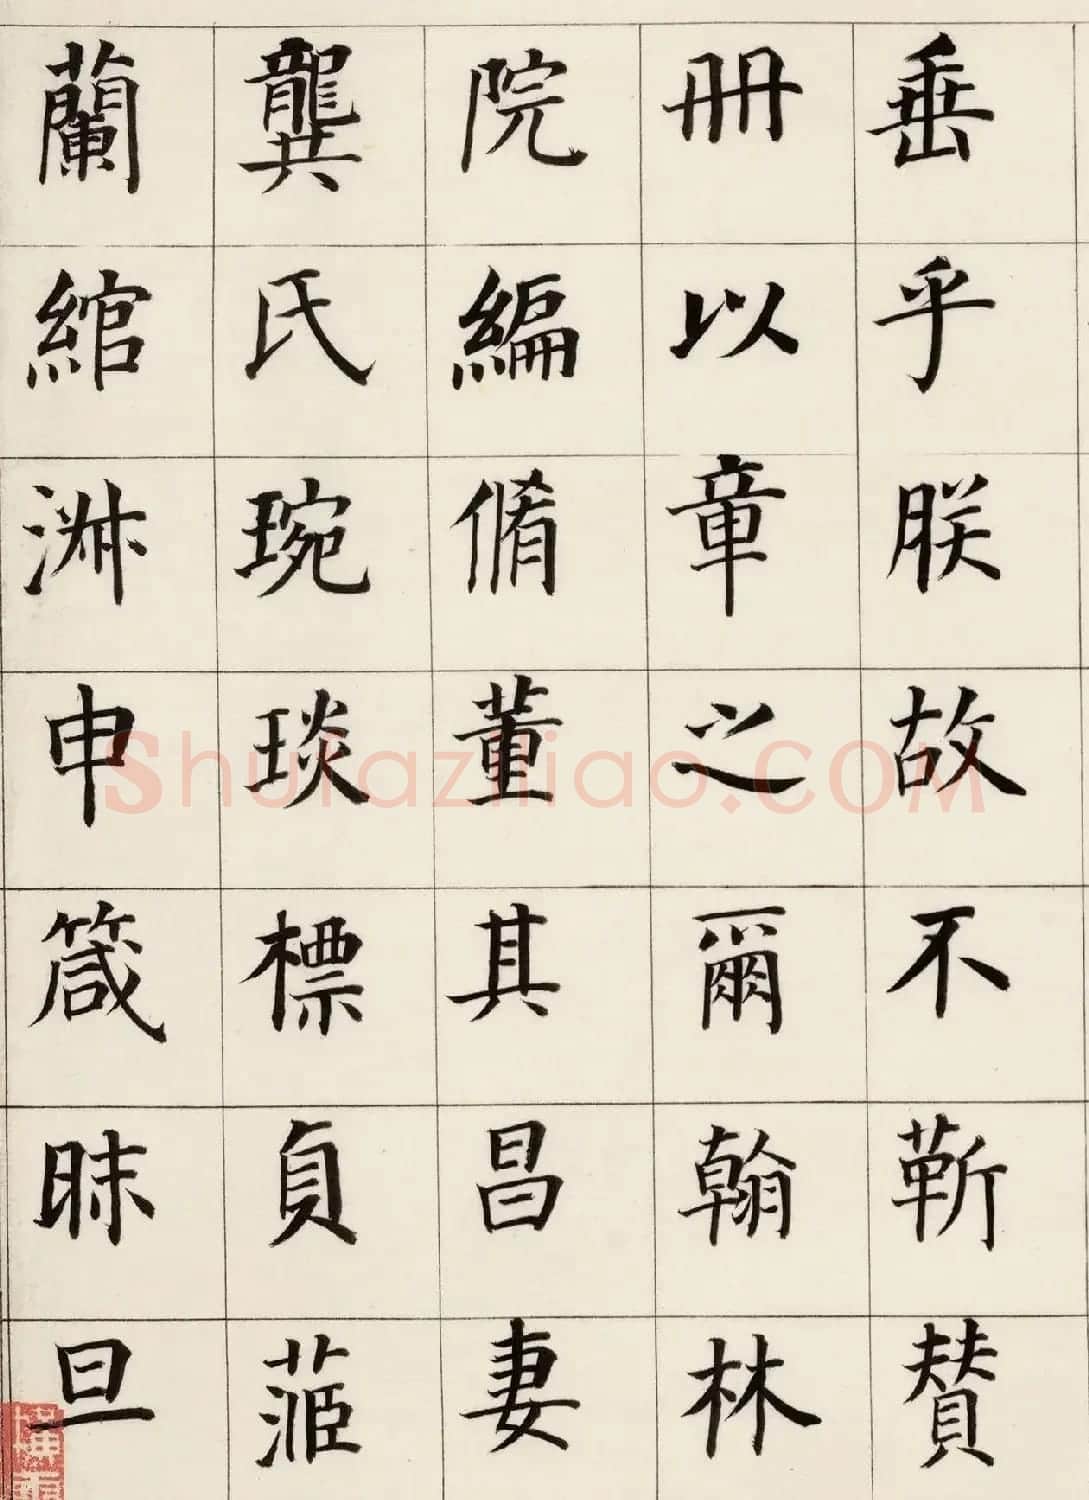 垂乎朕故不蘄賛
冊以章之爾翰林
院編脩董其昌妻
龔氏琬琰標貞茝
蘭綰淋申箴昧旦
Shufaziliao.COM